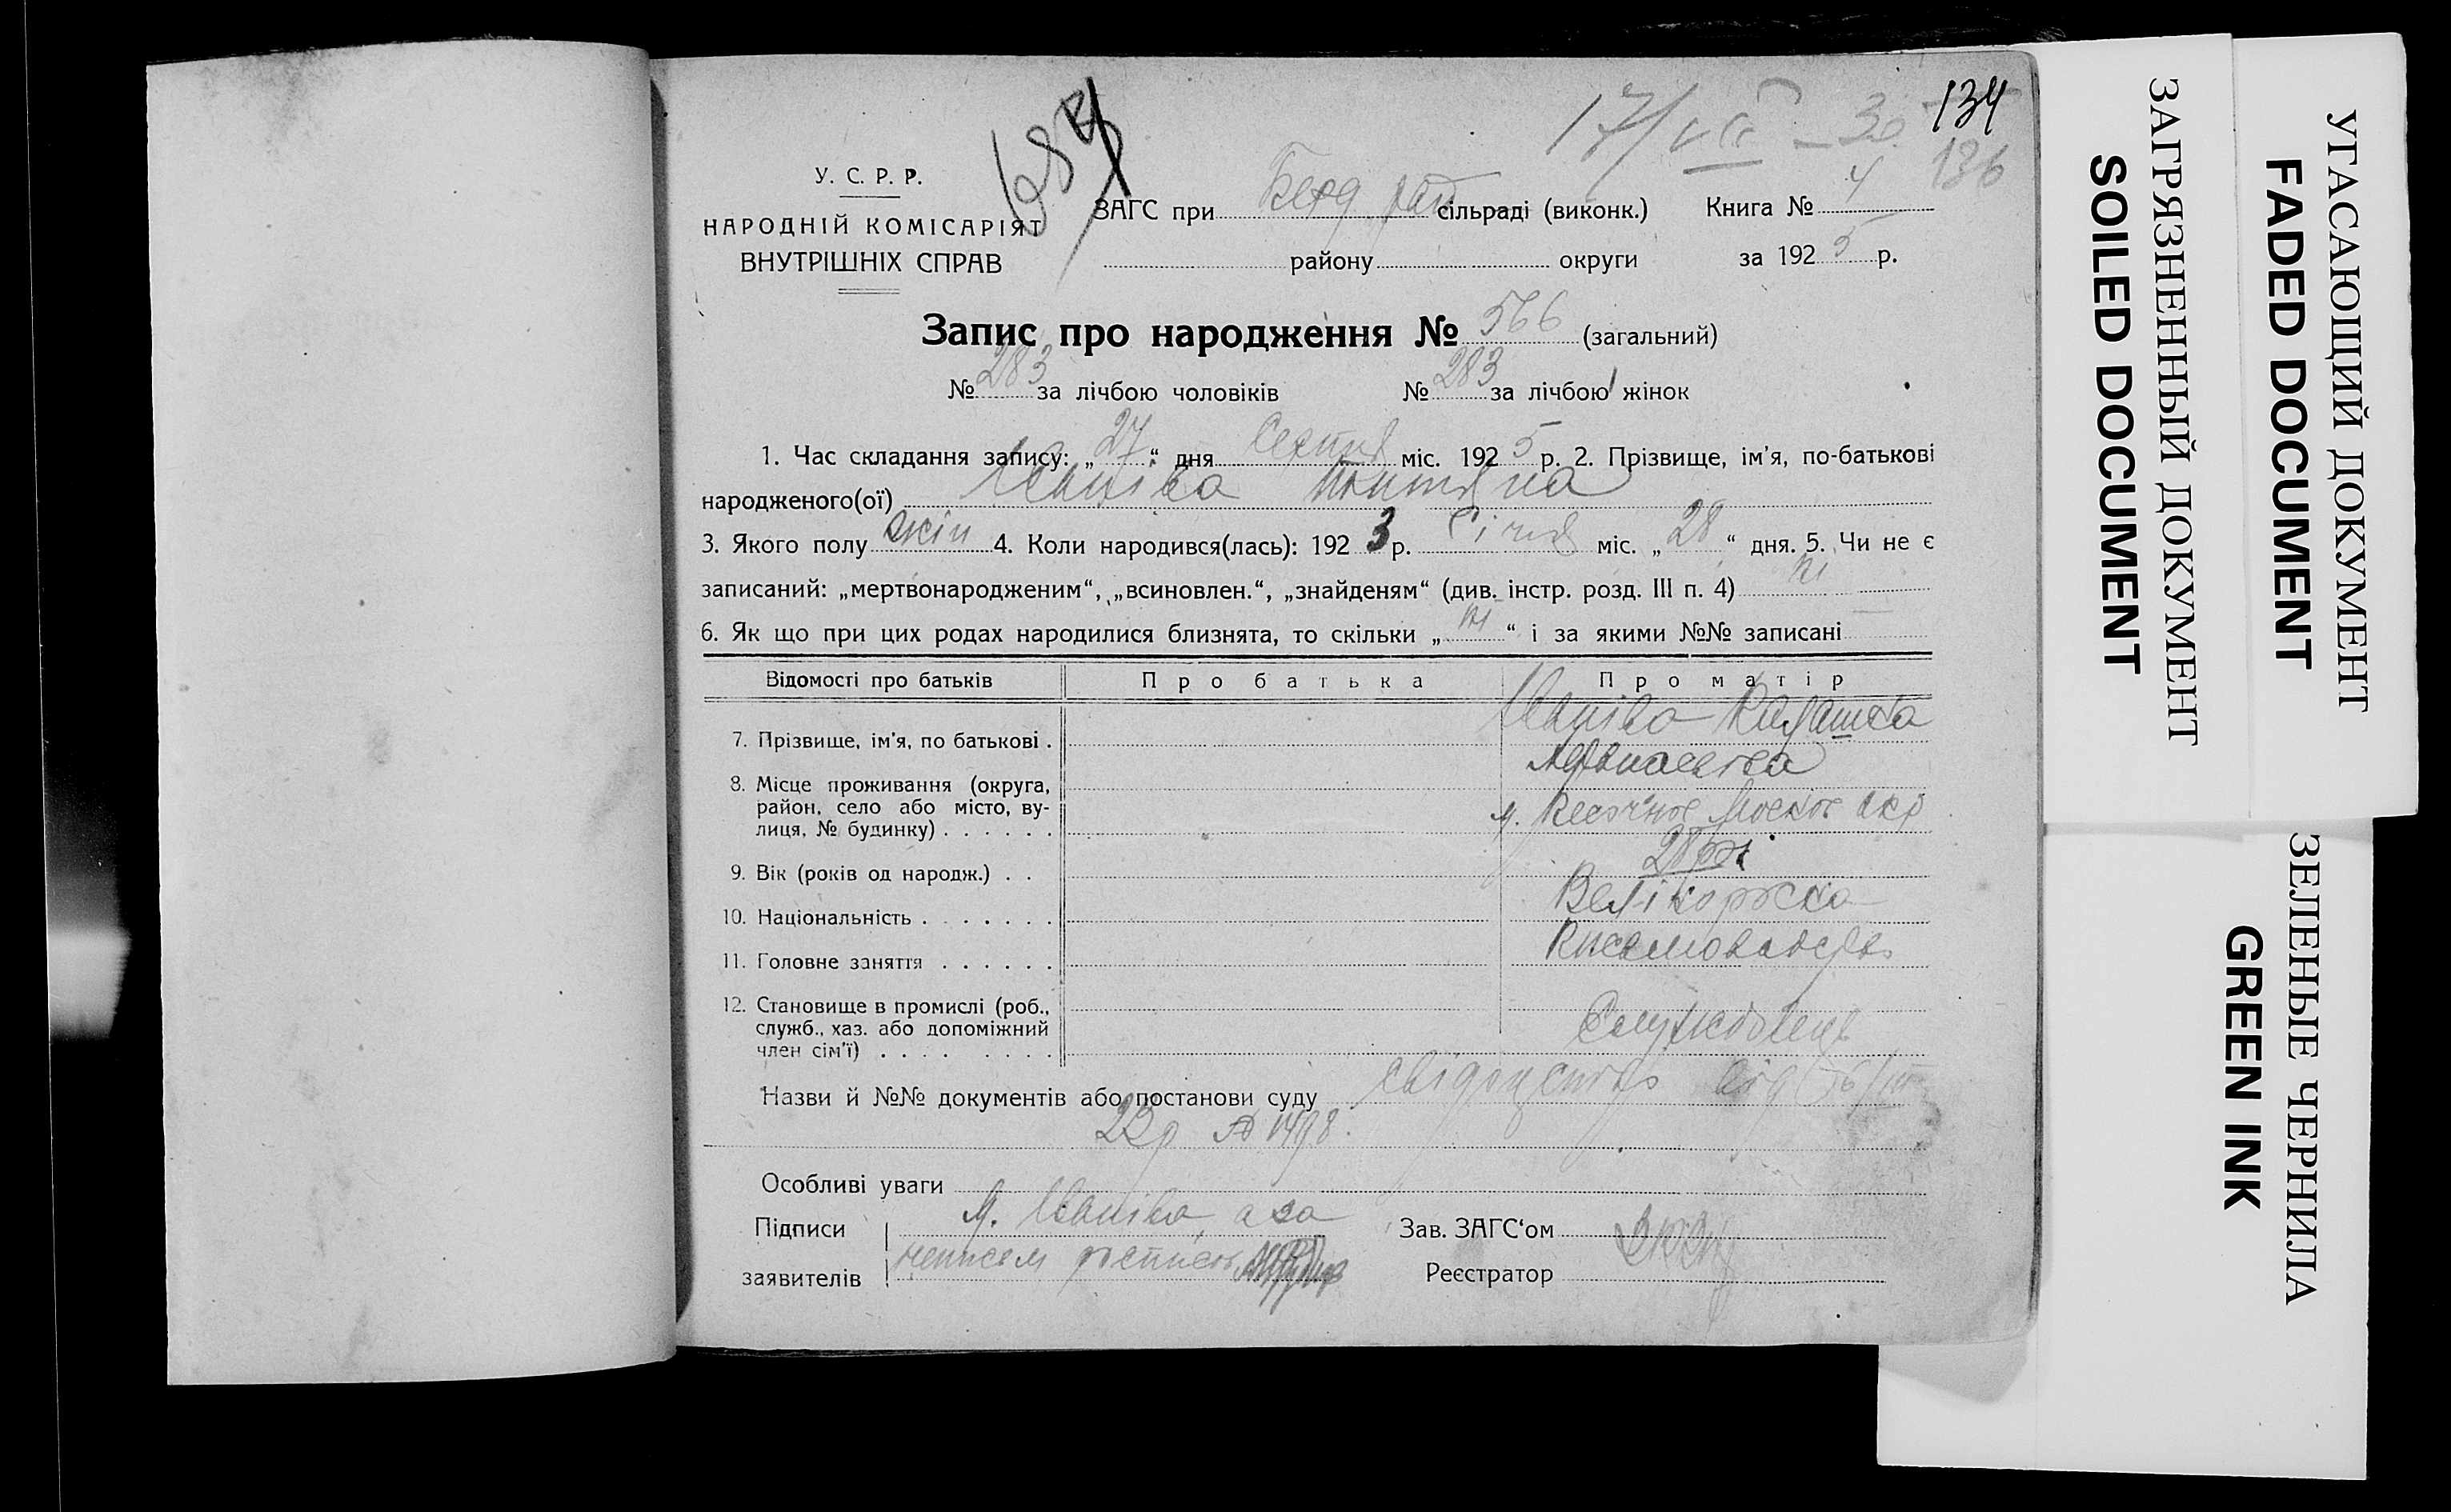 134
17/VII – 30
136
У. С. Р. Р.
НАРОДНІЙ КОМІСАРІЯТ
ВНУТРІШНІХ СПРАВ
ЗАГС при Берд рай сільраді (виконк.) Книга № 4
району округи за 192 5 р.
Запис про народження № 566 (загальний)
№ 283 за лічбою чоловіків № 283 за лічбою жінок
1. Час складання запису: „ 27 “ дня Серпня міс. 192 5 р. 2. Прізвище, ім'я, по-батькові
народженого(ої) Іванова
3. Якого полу жін 4. Коли народився(лась): 192 3 р. Січня міс. „ 28 “ дня. 5. Чи не є
записаний: „мертвонародженим“, „всиновлен.“, „знайденям“ (див. інстр. розд. III п. 4) ні
6. Як що при цих родах народилися близнята, то скільки „ ні “ і за якими №№ записані
Відомості про батьків Про батька Про матір
7. Прізвище, ім'я, по батькові .
8. Місце проживання (округа,
район, село або місто, ву-
лиця, № будинку) . . . . . .
9. Вік (років од народж.) . . 28
10. Національність . . . . . . . Велікоруска
11. Головне заняття . . . . . .
12. Становище в промислі (роб.,
служб., хаз. або допоміжний
член сім'ї) . . . . . . . . Службовець
Назви й №№ документів або постанови суду від
23 р № 1498.
Особливі уваги
Підписи
заявителів
Зав. ЗАГС‘ом
Реєстратор
ЗАГРЯЗНЕННЫЙ ДОКУМЕНТ
SOILED DOCUMENT
УГАСАЮЩИЙ ДОКУМЕНТ
FADED DOCUMENT
ЗЕЛЕНЫЕ ЧЕРНИЛА
GREEN INK